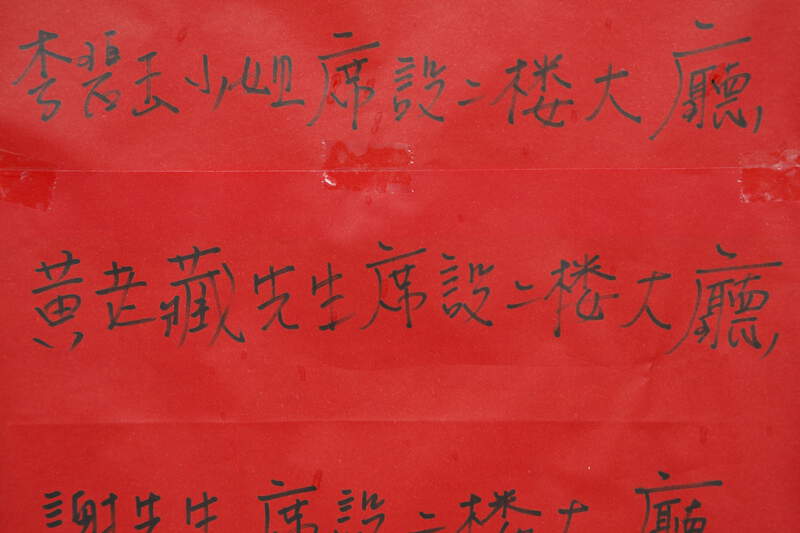 李碧玉小姐席設二楼大廳
黃老藏先生席設二楼大廳
謝先生席設二楼大廳